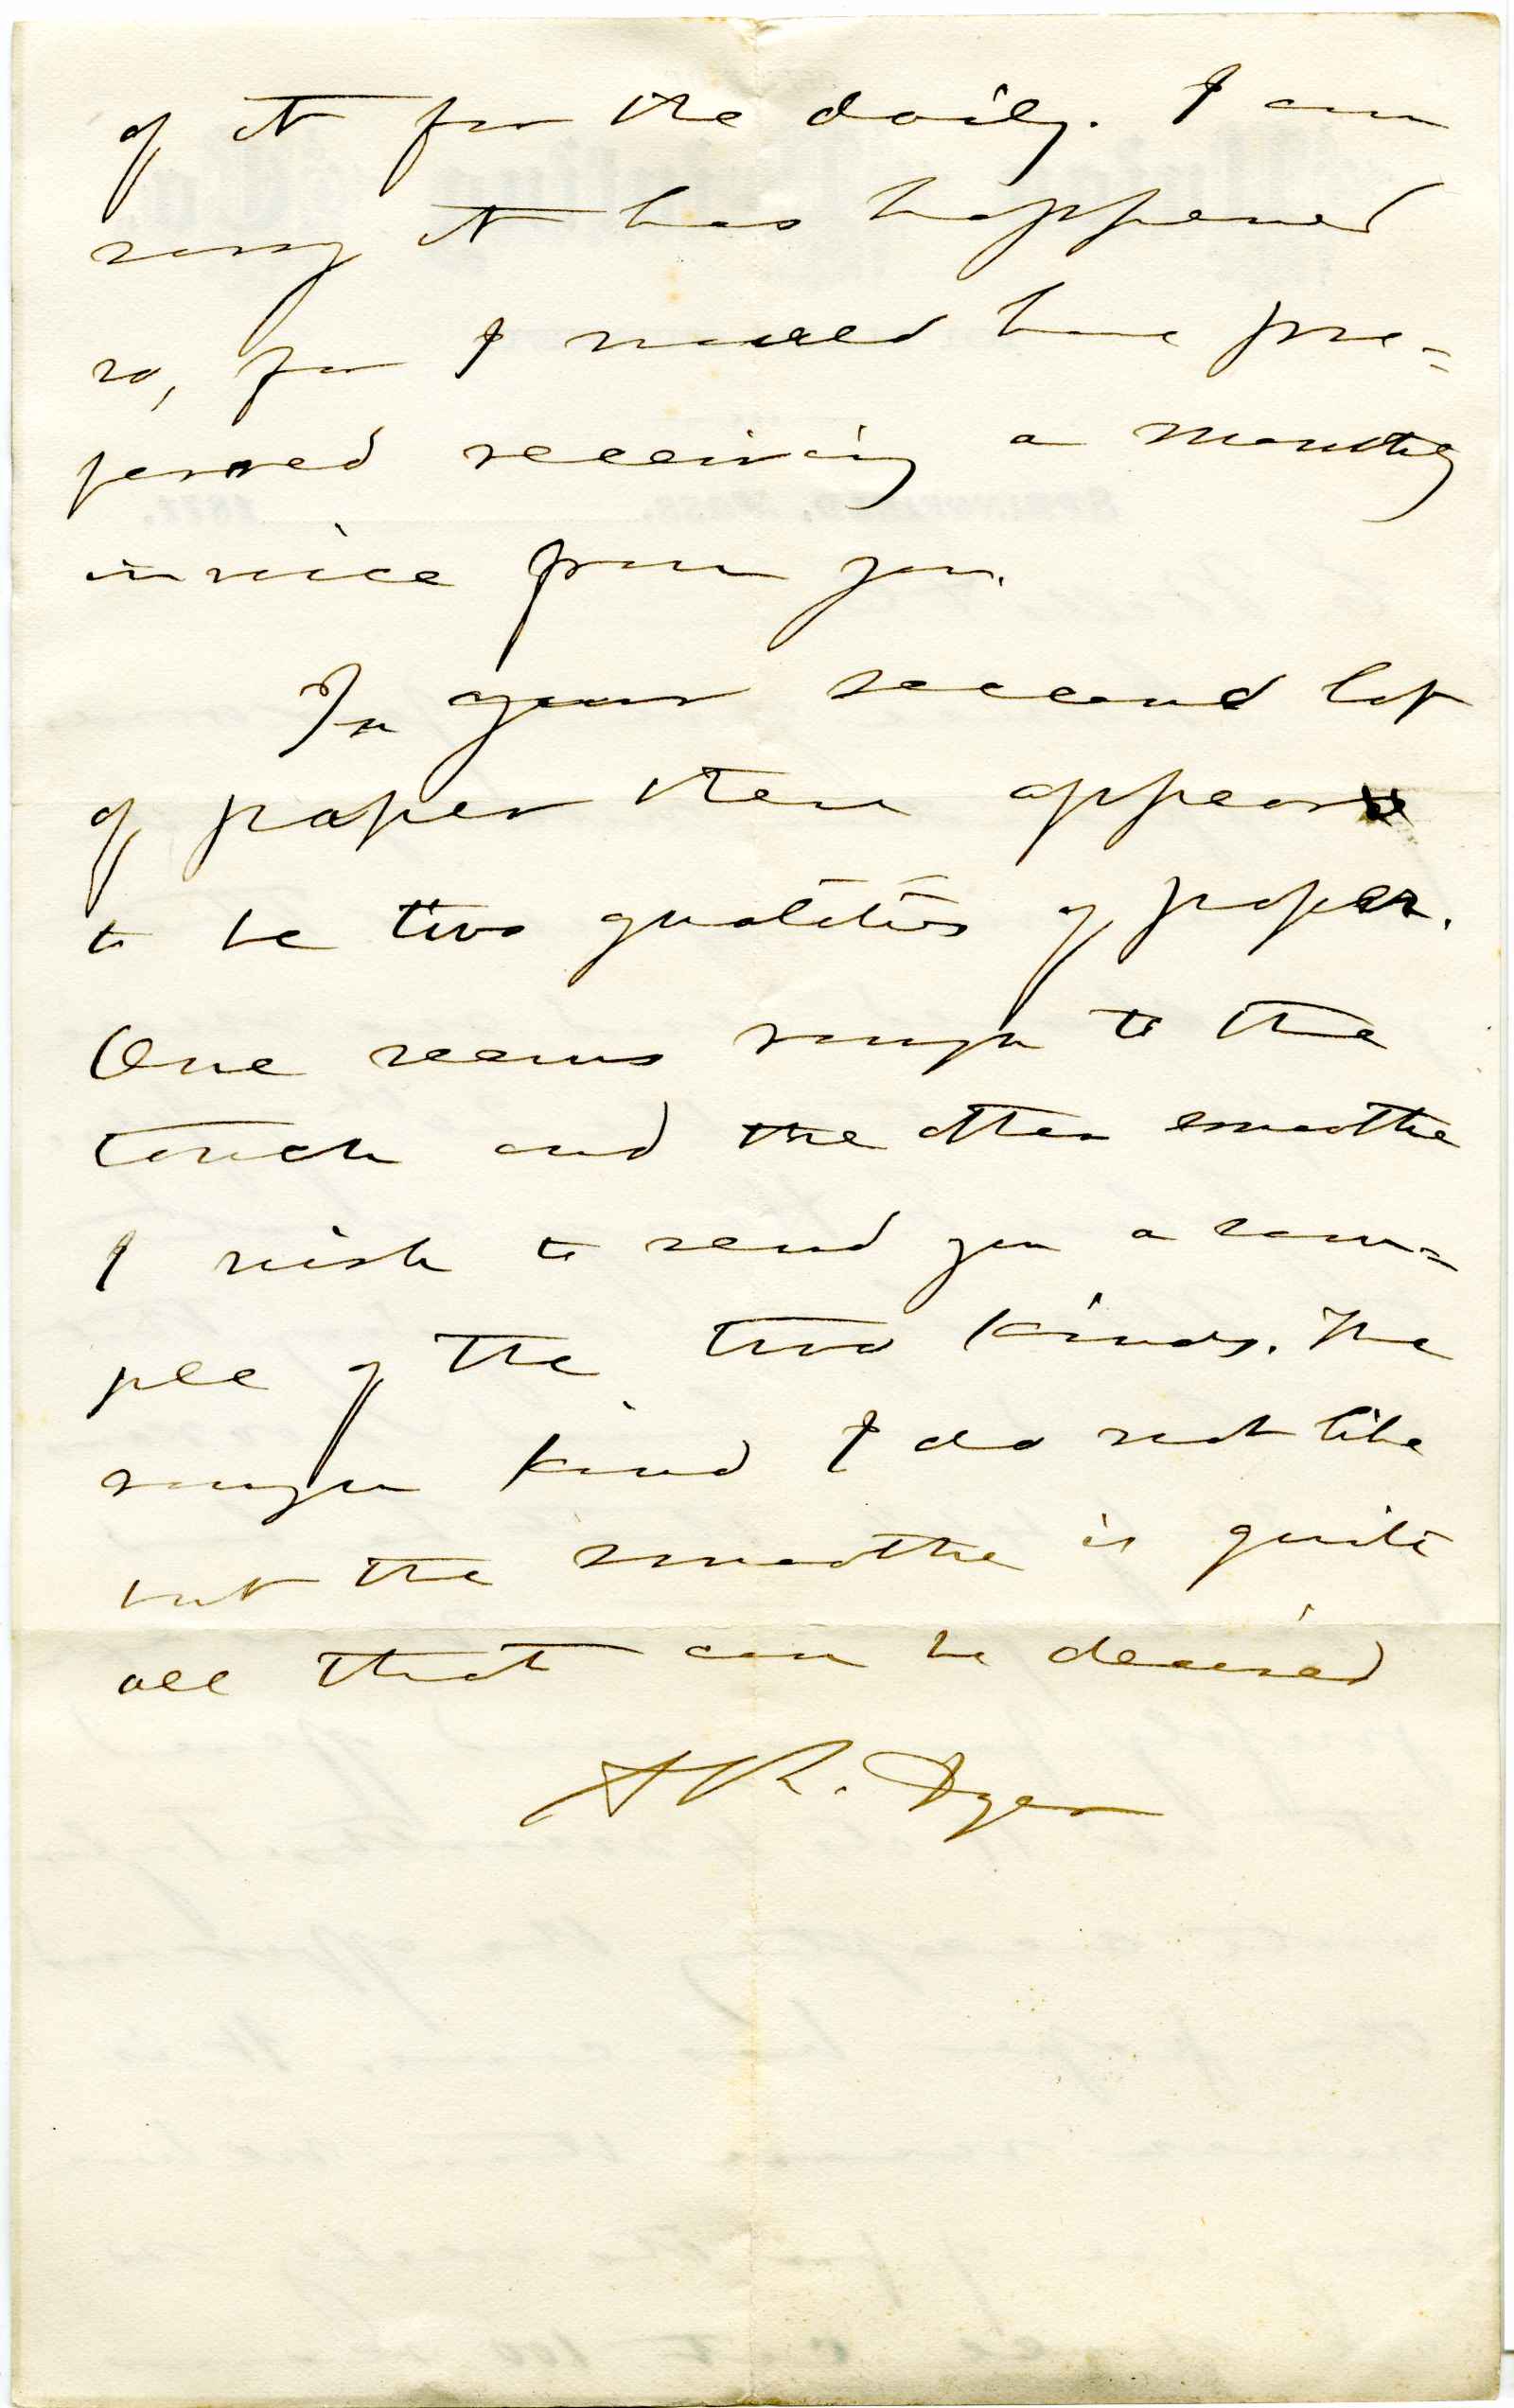 of it for the daily. I am
sorry it has happened
so, for I would have pre=
ferred receiving a monthly
invoice from you.
In your second lot
of paper there appears
to be two qualities of paper.
One seems rough to the
touch and the other smoothe
I wish to send you a sam=
ple of the two kinds. The
rough kind I do not like
but the smoothe is quite
all that can be desired
R. Dyer